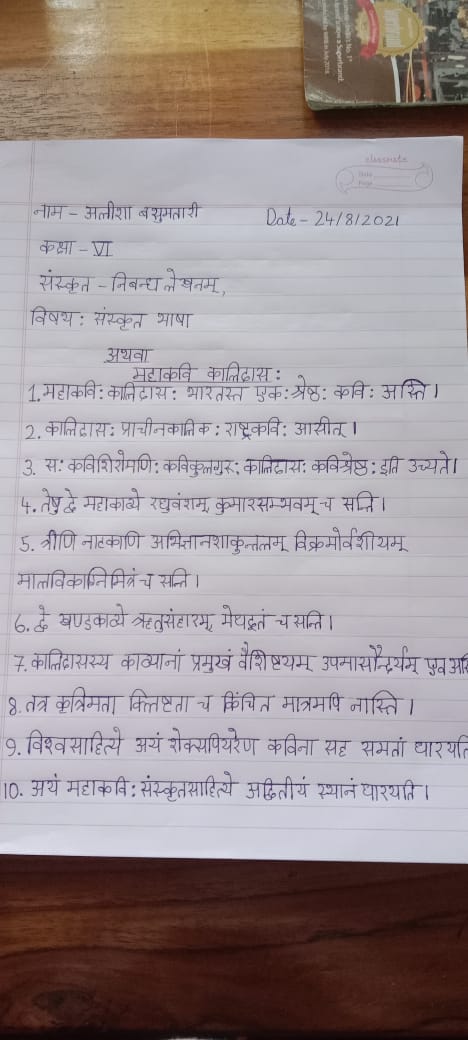 No. 1*
a Superbrand.
classmate
Date
Page
नाम - अलीशा बसुमतारी Date - 24/8/2021
कक्षा - VI
संस्कृत - निबन्ध लेखनम्,
विषय: संस्कृत भाषा
अथवा
महाकवि कालिदास:
1. महाकवि: कालिदास: भारतस्त एक: श्रेष्ठ: कवि: अस्ति।
2. कालिदास: प्राचीनकालिक: राष्ट्रकवि: आसीत्।
3. स: कविशिरोमणि: कविकुलगुरू: कालिदास: कविश्रेष्ठ: इति उच्यते।
4. तेषु द्वे महाकाव्ये रघुवंशम्, कुमारसम्भवम् च सन्ति।
5. त्रीणि नाटकाणि अभिज्ञानशाकुन्तलम् विक्रमोर्वशीयम्
मालविकाग्निमित्रं च सन्ति।
6. द्वे खण्डकाव्ये ऋतुसंहारम्, मेघदूतं च सन्ति।
7. कालिदासस्य काव्यानां प्रमुखं वैशिष्टयम् उपमासौन्दर्यम् एव अस्ति
8. तत्र कृत्रिमता क्लिष्टता च किंचित मात्रमपि नास्ति।
9. विश्वसाहित्ये अयं शेक्सपियरेण कविना सह समतां धारयति
10. अयं महाकवि: संस्कृतसाहित्ये अद्वितीयं स्थानं धारयति।